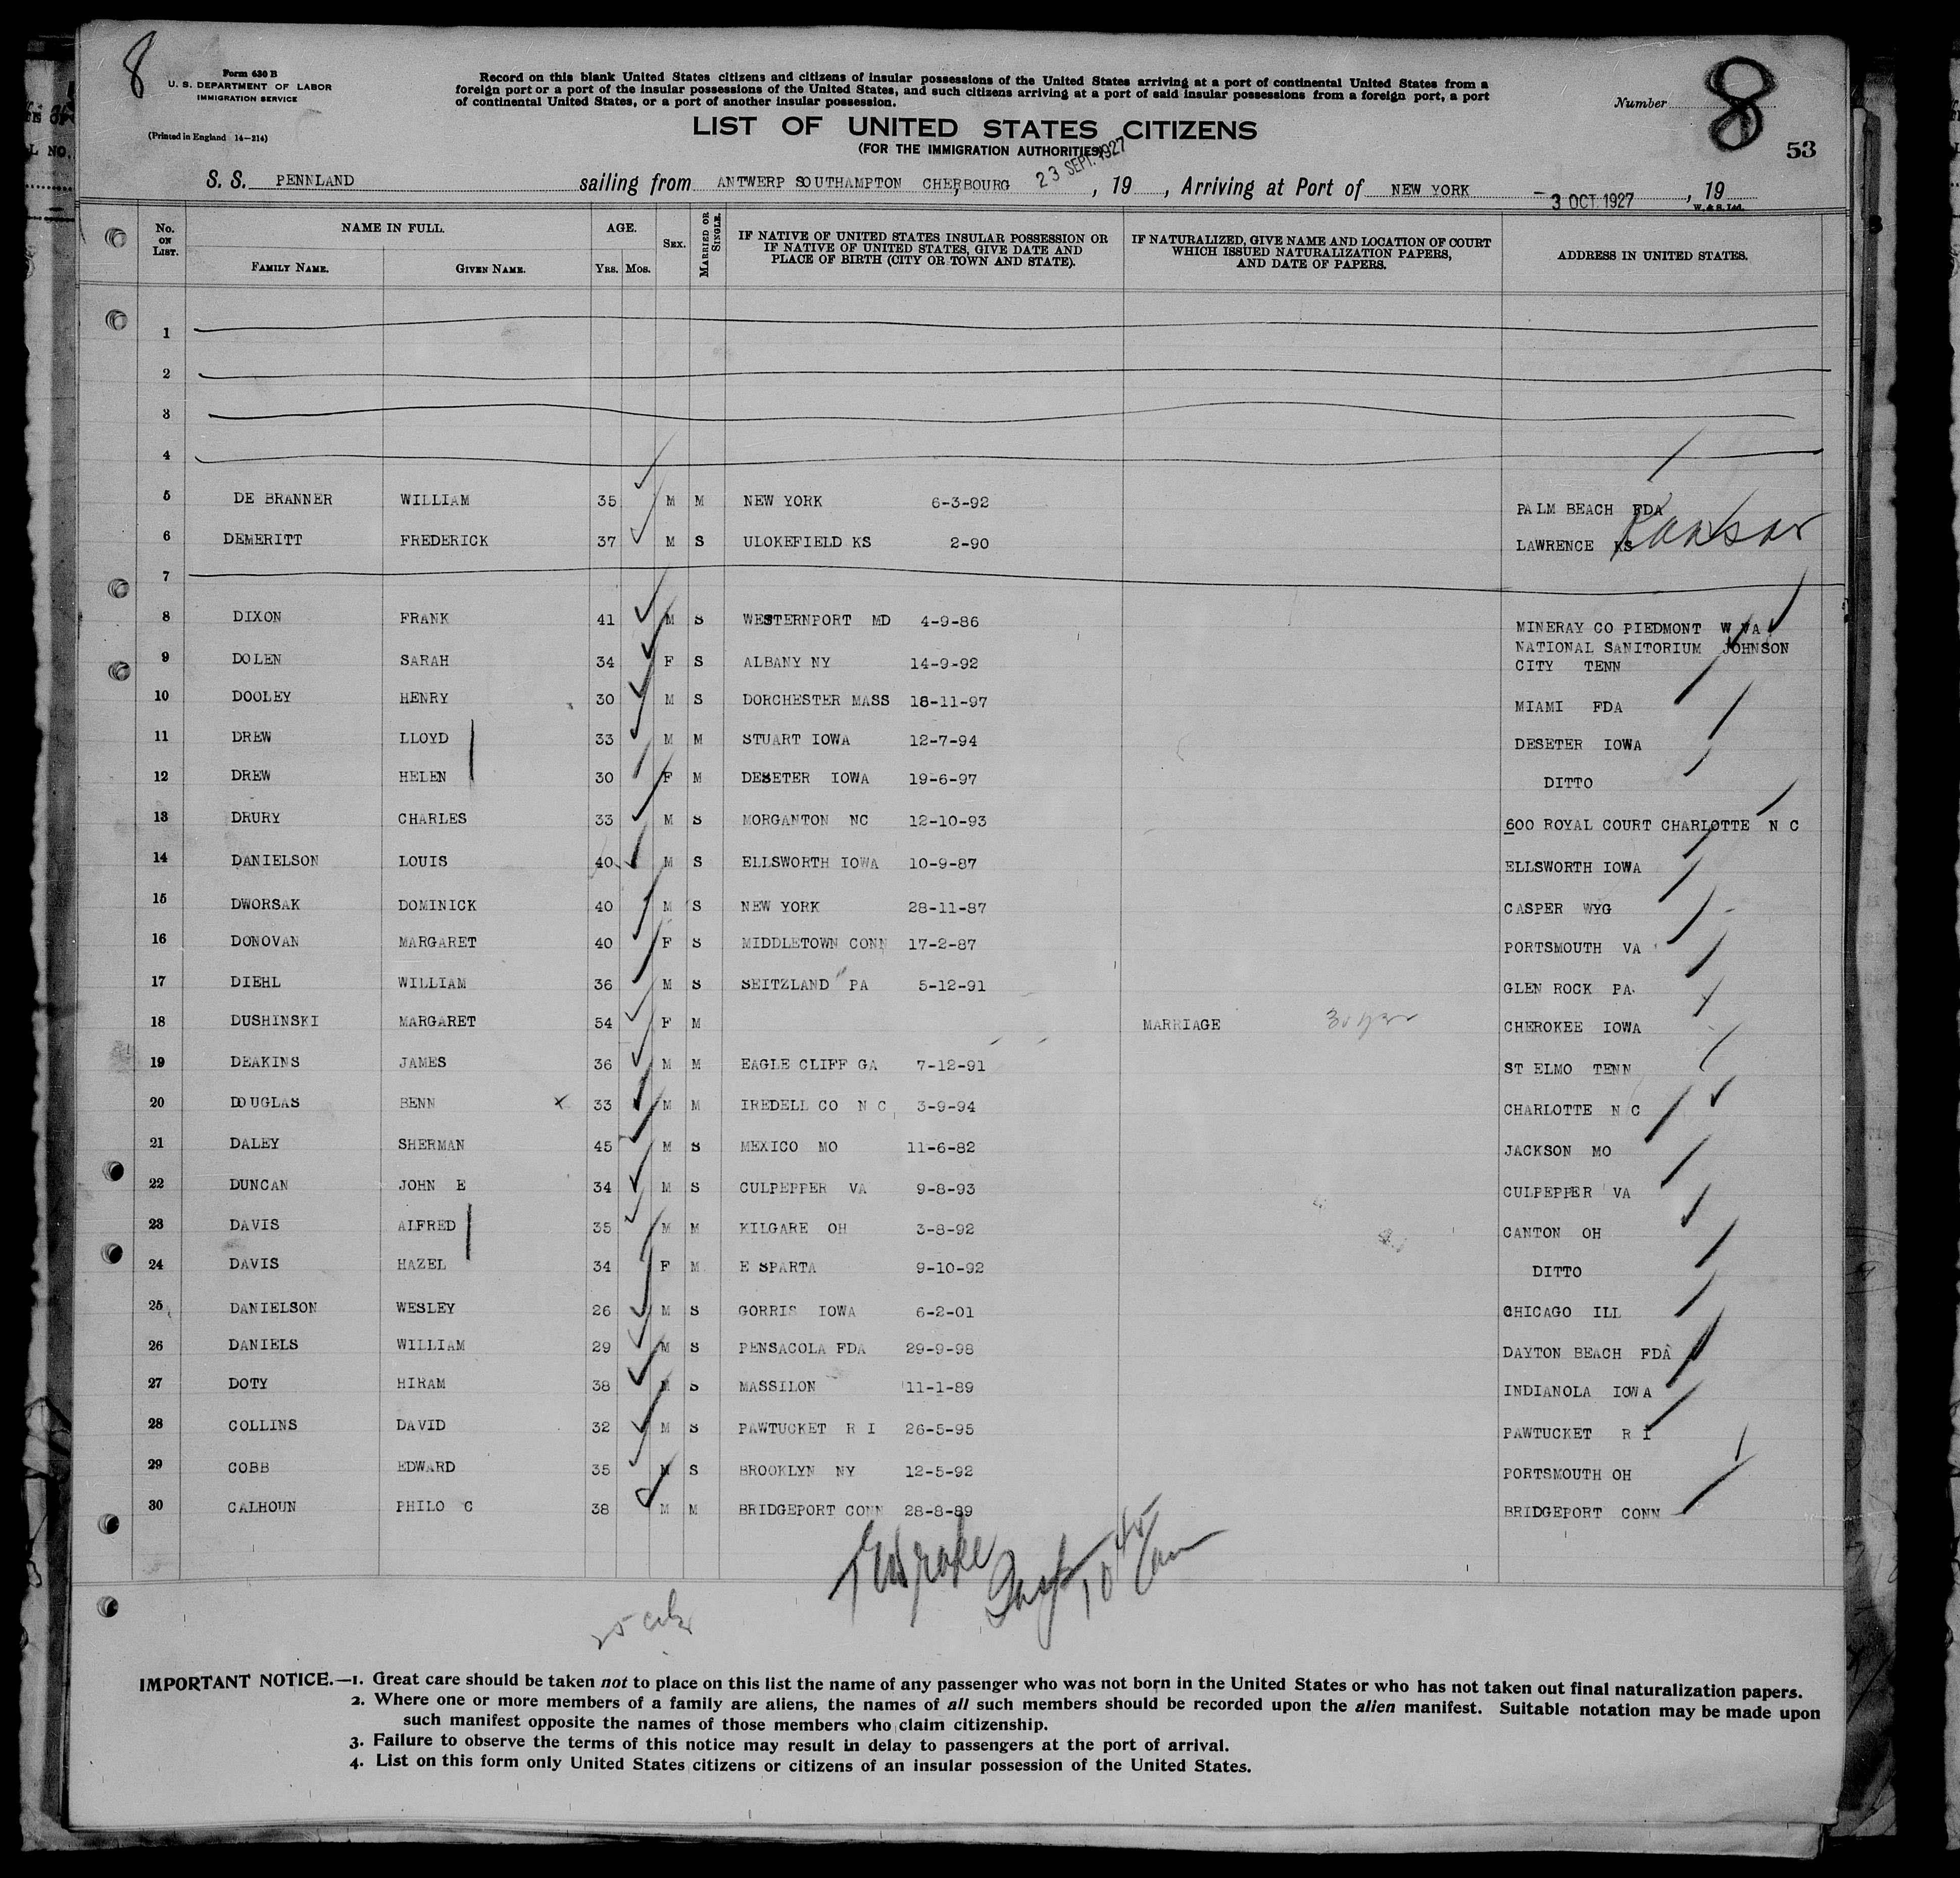 8
Form 630 B
U. S. DEPARTMENT OF LABOR
IMMIGRATION SERVICE
(Printed in England 14—214)
Record on this blank United States citizens and citizens of insular possessions of the United States arriving at a port of continental United States from a
foreign port or a port of the insular possessions of the United States, and such citizens arriving at a port of said insular possessions from a foreign port, a port
of continental United States, or a port of another insular possession.
Number 8
53
LIST OF UNITED STATES CITIZENS
(FOR THE IMMIGRATION AUTHORITIES)
S. S. PENNLAND sailing from ANTWERP SOUTHAMPTON CHERBOURG 23 SEPT. 1927, 19 , Arriving at Port of NEW YORK - 3 OCT. 1927, 19
W. & S. Ltd.
No. ON LIST. NAME IN FULL. AGE. SEX. MARRIED OR SINGLE. IF NATIVE OF UNITED STATES INSULAR POSSESSION OR IF NATIVE OF UNITED STATES, GIVE DATE AND PLACE OF BIRTH (CITY OR TOWN AND STATE). IF NATURALIZED, GIVE NAME AND LOCATION OF COURT WHICH ISSUED NATURALIZATION PAPERS, AND DATE OF PAPERS. ADDRESS IN UNITED STATES.
FAMILY NAME. GIVEN NAME. YRS. MOS.
1
2
3
4
5 DE BRANNER WILLIAM 35 M M NEW YORK 6-3-92 PALM BEACH FDA
6 DEMERITT FREDERICK 37 M S ULOKEFIELD KS 2-90 LAWRENCE KS Kansas
7
8 DIXON FRANK 41 M S WESTERNPORT MD 4-9-86 MINERAY CO PIEDMONT W VA
9 DOLEN SARAH 34 F S ALBANY NY 14-9-92 NATIONAL SANITORIUM JOHNSON
CITY TENN
10 DOOLEY HENRY 30 M S DORCHESTER MASS 18-11-97 MIAMI FDA
11 DREW LLOYD 33 M M STUART IOWA 12-7-94 DESETER IOWA
12 DREW HELEN 30 F M DESETER IOWA 19-6-97 DITTO
13 DRURY CHARLES 33 M S MORGANTON NC 12-10-93 600 ROYAL COURT CHARLOTTE N C
14 DANIELSON LOUIS 40 M S ELLSWORTH IOWA 10-9-87 ELLSWORTH IOWA
15 DWORSAK DOMINICK 40 M S NEW YORK 28-11-87 CASPER WYG
16 DONOVAN MARGARET 40 F S MIDDLETOWN CONN 17-2-87 PORTSMOUTH VA
17 DIEHL WILLIAM 36 M S SEITZLAND PA 5-12-91 GLEN ROCK PA
18 DUSHINSKI MARGARET 54 F M MARRIAGE CHEROKEE IOWA
19 DEAKINS JAMES 36 M M EAGLE CLIFF GA 7-12-91 ST ELMO TENN
20 DOUGLAS BENN x 33 M M IREDELL CO N C 3-9-94 CHARLOTTE N C
21 DALEY SHERMAN 45 M S MEXICO MO 11-6-82 JACKSON MO
22 DUNCAN JOHN E 34 M S CULPEPPER VA 9-8-93 CULPEPPER VA
23 DAVIS ALFRED 35 M M KILGARE OH 3-8-92 CANTON OH
24 DAVIS HAZEL 34 F M E SPARTA 9-10-92 DITTO
25 DANIELSON WESLEY 26 M S GORRIS IOWA 6-2-01 CHICAGO ILL
26 DANIELS WILLIAM 29 M S PENSACOLA FDA 29-9-98 DAYTON BEACH FDA
27 DOTY HIRAM 38 M S MASSILON 11-1-89 INDIANOLA IOWA
28 COLLINS DAVID 32 M S PAWTUCKET R I 26-5-95 PAWTUCKET R I
29 COBB EDWARD 35 M S BROOKLYN NY 12-5-92 PORTSMOUTH OH
30 CALHOUN PHILO C 38 M M BRIDGEPORT CONN 28-8-89 BRIDGEPORT CONN
IMPORTANT NOTICE.—1. Great care should be taken not to place on this list the name of any passenger who was not born in the United States or who has not taken out final naturalization papers.
2. Where one or more members of a family are aliens, the names of all such members should be recorded upon the alien manifest. Suitable notation may be made upon
such manifest opposite the names of those members who claim citizenship.
3. Failure to observe the terms of this notice may result in delay to passengers at the port of arrival.
4. List on this form only United States citizens or citizens of an insular possession of the United States.